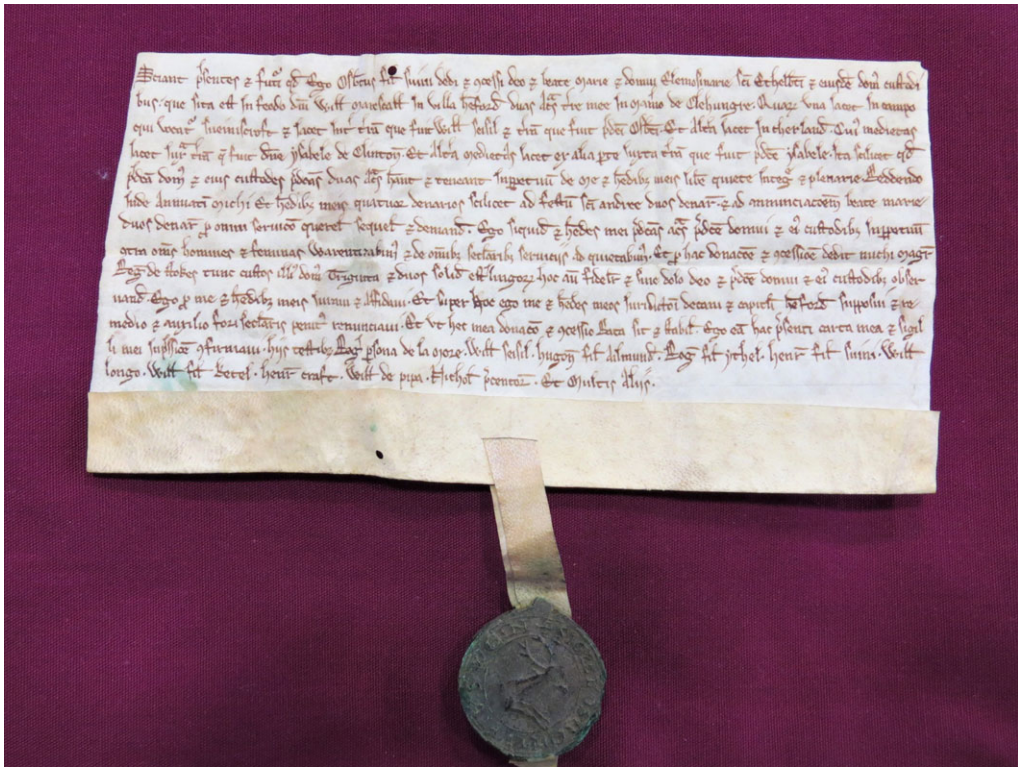 Sciant p̃sentes ⁊ fut̃i qđ Ego Osb̃tus fil̃ suini dedi ⁊ ɔcessi deo ⁊ beate Marie ⁊ domui Elemosinarie Sc̃i Ethelb̃ti ⁊ eiusdẽ dom̃ custodi
bus. que sita est in feodo dñi Will̃ Marescall in villa h̃eford duas Ac̃s t̃re mee in Man̾io de Clehungre. Quar̃ vna iacet in campo
qui vocat̃ sueiniscroft ⁊ iacet int̃ t̃rã que fuit Will̃ seisil ⁊ t̃rã que fuit p̃dc̃i Osb̃ti. Et Alt̃a iacet in therland. Cui᷒ medietas
iacet iux̃ t̃rã q̃ fuit dñe ysabele de Clinton̾. Et Alt̃a Medietas iacet ex alia p̃te iuxta t̃rã que fuit p̃dc̃e ysabele. Ita scilicet qđ
p̃dc̃a dom᷒ ⁊ eius custodes p̃dc̃as duas Ac̃s h̃ant ⁊ teneant inp̃petuũ de Me ⁊ h̃edib᷒ meis lib̃e quiete integ̃ ⁊ plenarie. Reddendo
inde Annuati᷒ Michi Et h̃edib᷒ meis quatuor denarios scilicet ad festũ Sc̃i andree duos denar̃. ⁊ ad annunciacoẽm beate marie
duos denar̃ p̃ omni seruicio querel̃ sequel̃ ⁊ demand̃. Ego siquid̃ ⁊ h̃edes mei p̃dc̃as ac̃s p̃dc̃e domui ⁊ ei᷒ custodib᷒ inp̃petuũ
ɔtra om̃s homines ⁊ feminas Warentizabim᷒ ⁊ de omĩb᷒ sectarib᷒ seruiciis adquietabim᷒. Et p̃ hac donacõe ⁊ ɔcessiõe dedit michi Magr̃
Reg̃ de stokes tunc custos illi᷒ dom᷒ Triginta ⁊ duos solid̃ est̃lingor̃ hoc aũ fidelit̃ ⁊ sine dolo deo ⁊ p̃dc̃e domui ⁊ ei᷒ custodib᷒ obser
uand̃. Ego p̃ me ⁊ h̃edib᷒ meis iuraui ⁊ Affidaui. Et super hoc ego me ⁊ h̃edes meos iuridictõi decani ⁊ capituli h̃eford̃ supposui ⁊ re
medio ⁊ auxilio fori sec̃laris penit᷒ renunciaui. Et vt hec mea donacõ ⁊ ɔcessio Rata sit ⁊ stabil̃ Ego eã hac p̃senti carta mea ⁊ sigil
li mei inp̃ssiõe ɔfirmaui. hijs testib᷒ Reg̃ p̃sona de la more. Will̃ seisil. hugoñ fil̃ Ailmund̃. Reg̃ fil̃ ythel. henr̃ fil̃ suini. Will̃
longo. Will̃ fil̃ ketel. henr̃ craft. Will̃ de pipa. Nichol̃ p̃centor̃. Et Multis Aliis.